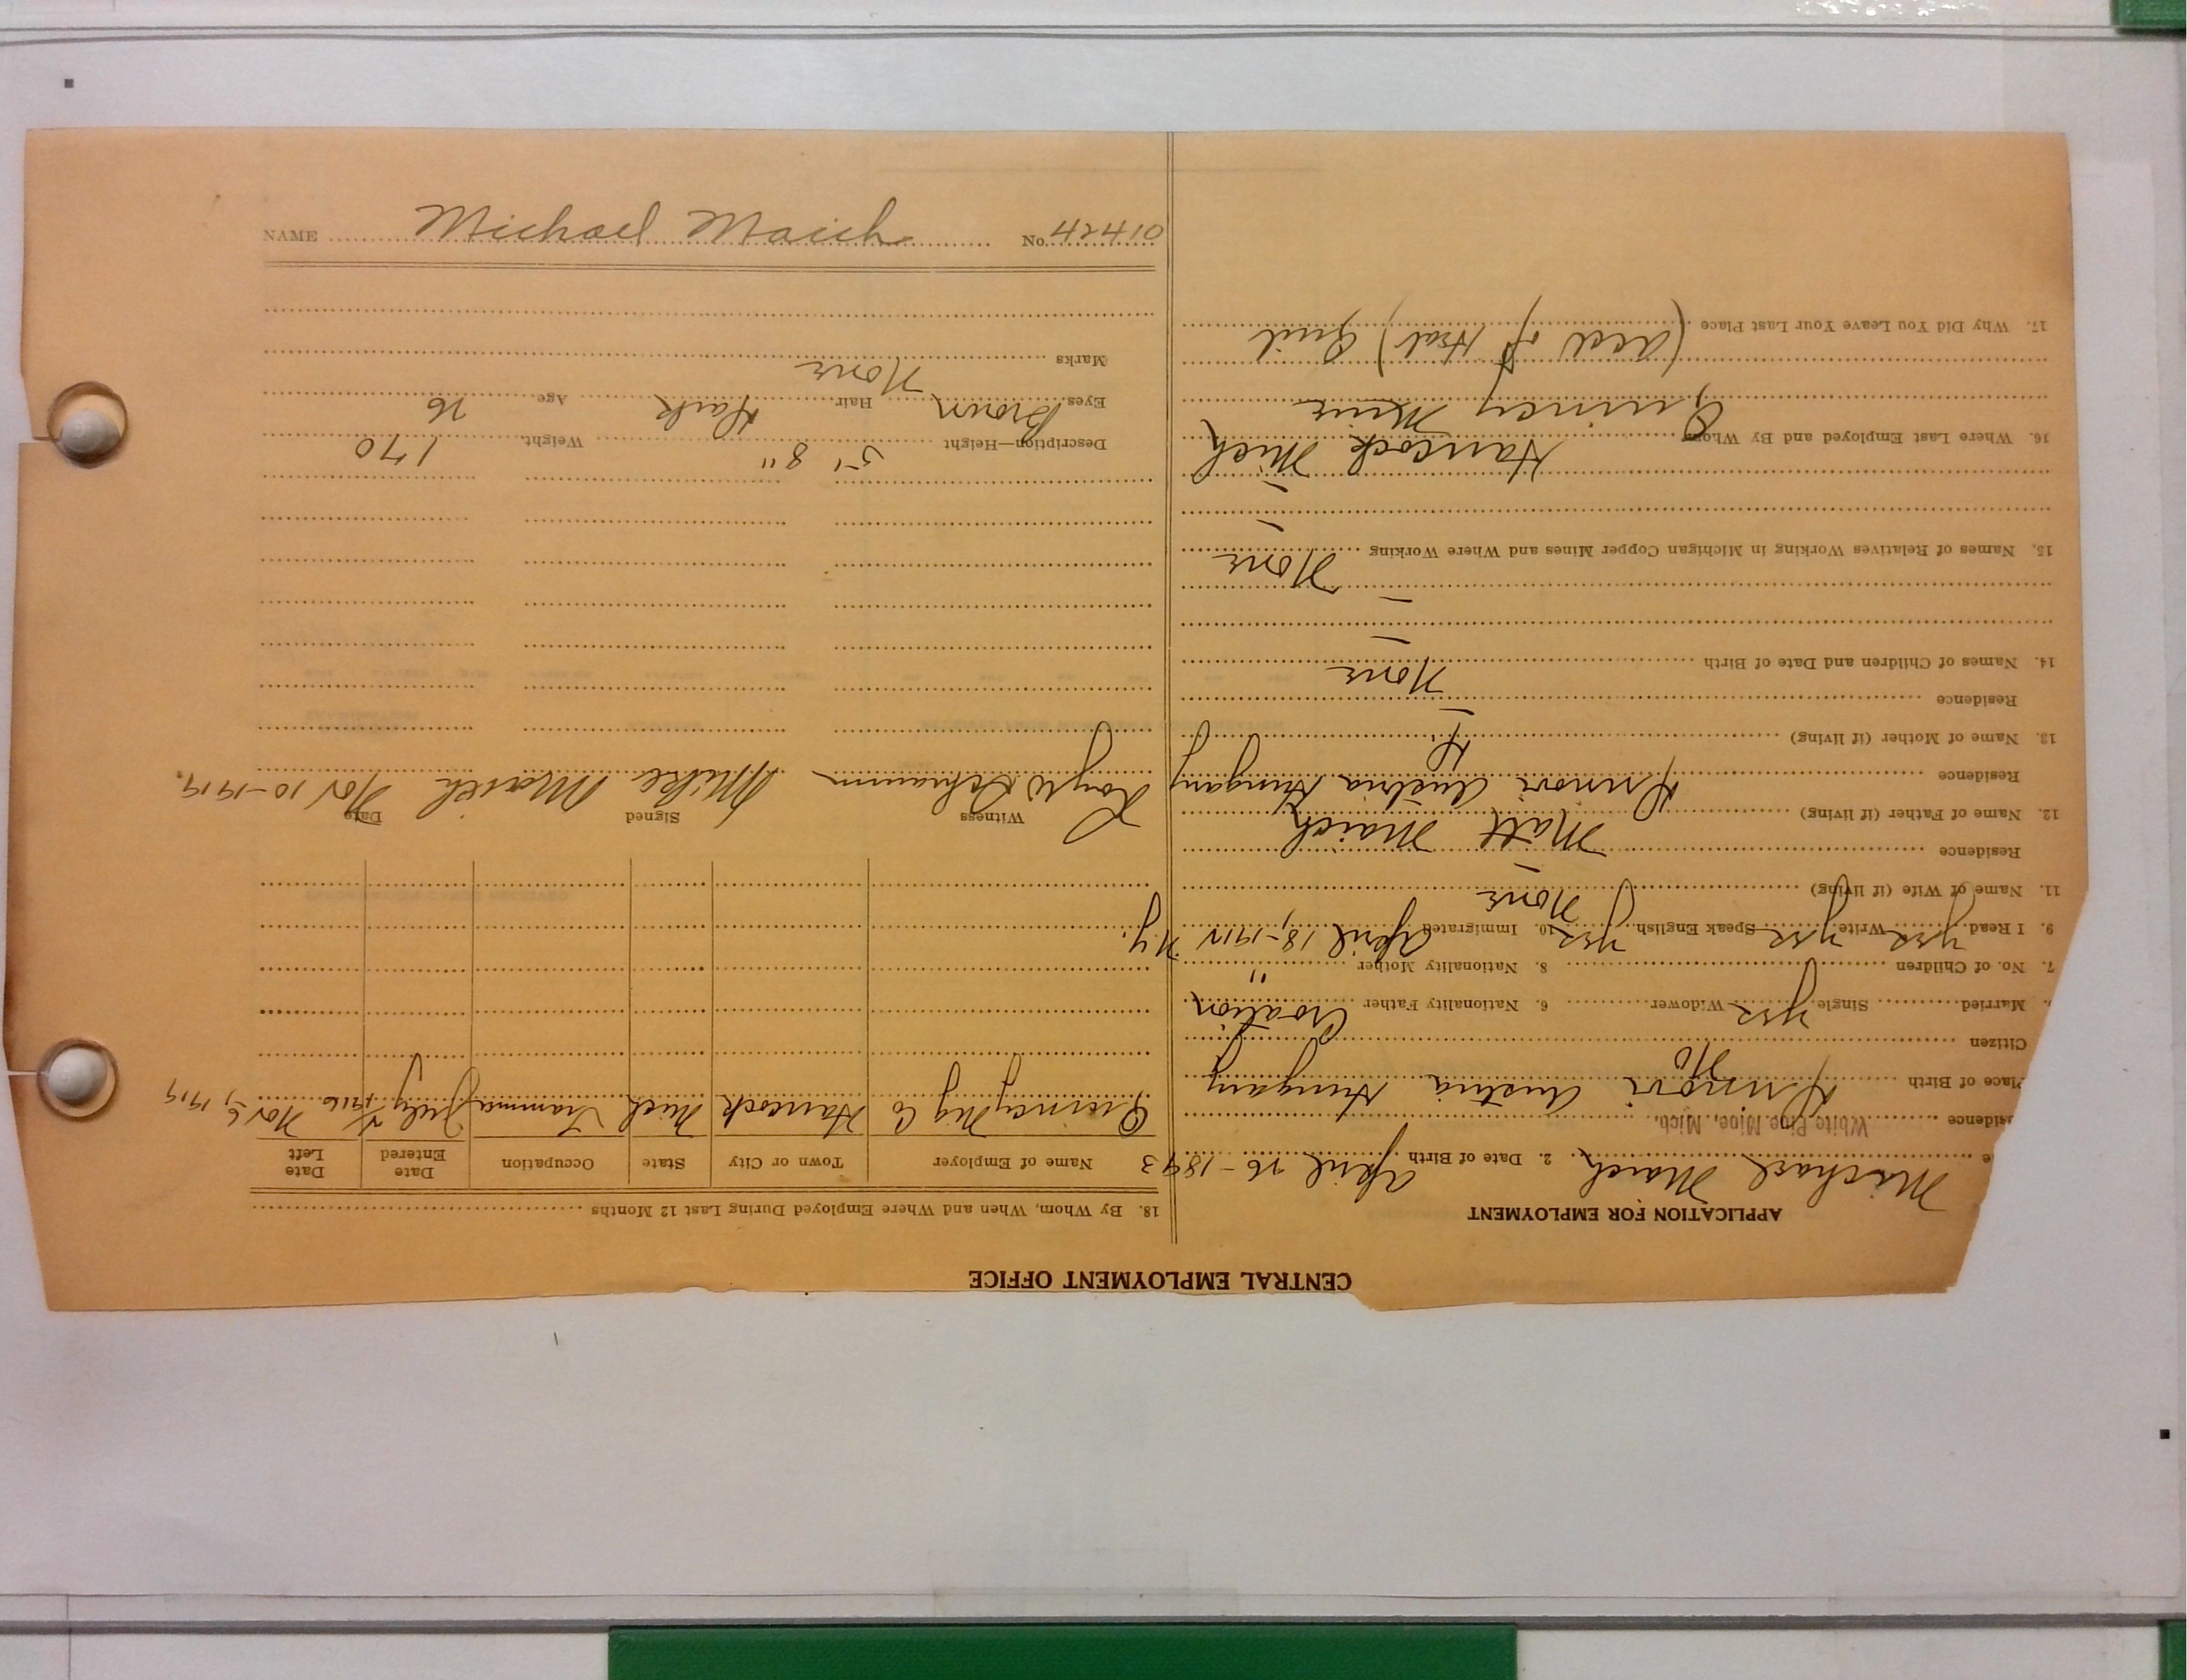 CENTRAL EMPLOYMENT OFFICE
APPLICATION FOR EMPLOYMENT
e Michael Maich 2. Date of Birth April 26-1893
sidence White Pine Mine, Mich.
Place of Birth Austria Hungary
Citizen No
Married Single yes Widower 6. Nationality Father Croation
7. No. of Children 8. Nationality Mother "
9. I Read yes Write yes Speak English yes 10. Immigrated April 18-1912 N.Y.
11. Name of Wife (if living) None
Residence -
12. Name of Father (if living) Matt Maich
Residence Austria Hungary
13. Name of Mother (if living)
Residence -
14. Names of Children and Date of Birth None
-
-
15. Names of Relatives Working in Michigan Copper Mines and Where Working None
-
-
16. Where Last Employed and By Whom Hancock Mich
Quincy Mine
17. Why Did You Leave Your Last Place (acc of Heat) Quit
18. By Whom, When and Where Employed During Last 12 Months
Name of Employer Town or City State Occupation Date Entered Date Left
Quincy Mig Co Hancock Mich Trammer July 1916 Nov 6, 1919
Witness Signed Date
Roy W Mike Maich Nov 10-1919.
Description—Height 5' 8" Weight 170
Eyes Brown Hair Dark Age 26
Marks None
NAME Michael Maich No. 42410